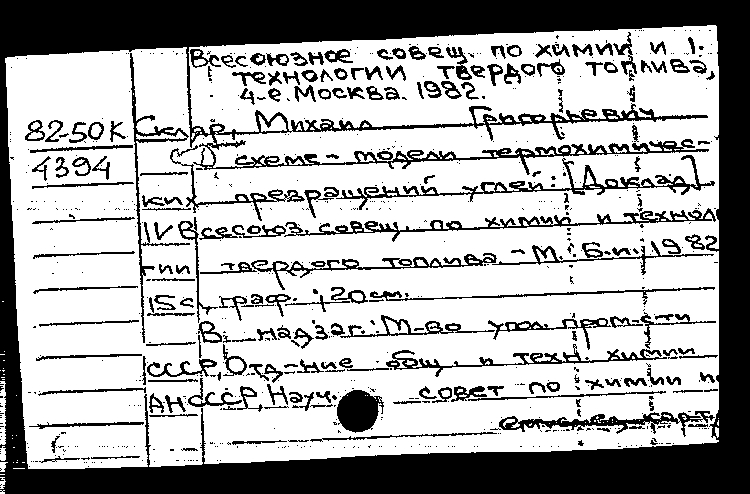 Всесоюзное совещ. по химии и
технологии твердого топлива,
4-е. Москва. 1982.
82-50К Скляр, Михаил Григорьевич
4394 О схеме-модели термохимичес-
ких превращений углей: [Доклад]
IV Всесоюз. совещ. по химии и техноло
гии твердого топлива. - М.: Б.и., 1982
15 с., граф.; 20 см.
В надзаг.: М-во угол. пром-сти
СССР, Отд-ние общ. и техн. химии
АН СССР, Науч. совет по химии